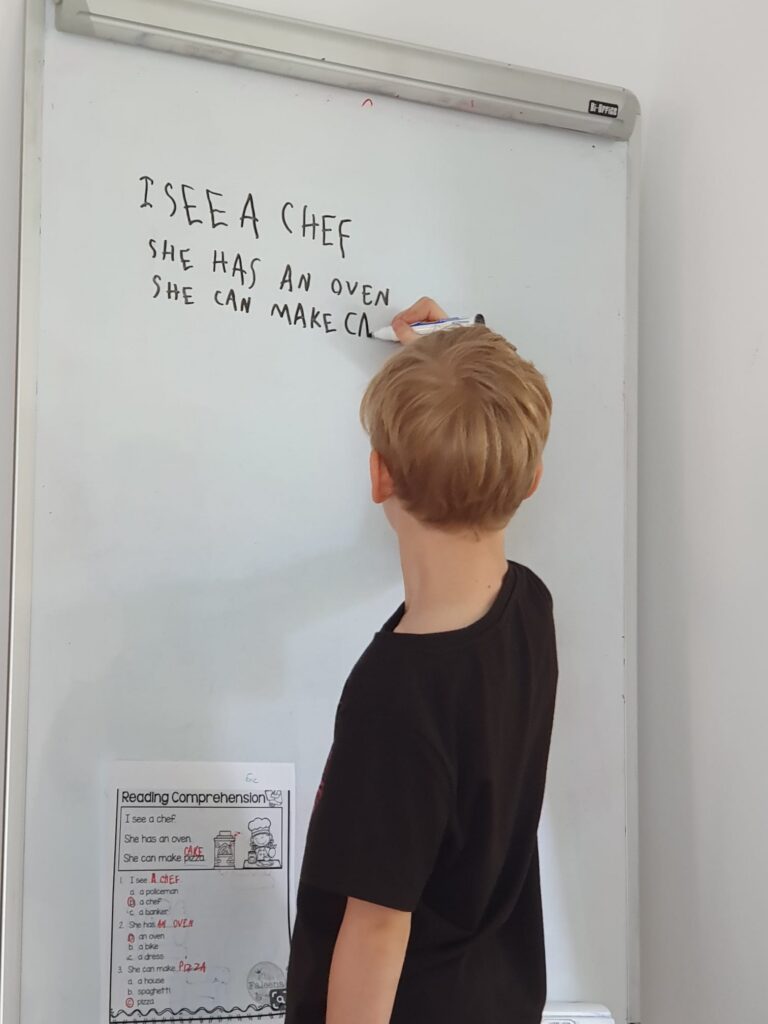 Bi-Office
I SEE A CHEF
SHE HAS AN OVEN
SHE CAN MAKE CA
Reading Comprehension
I see a chef.
She has an oven.
CAKE
She can make pizza.
1. I see A CHEF.
a. a policeman
b. a chef
c. a banker
2. She has AN OVEN
a. an oven
b. a bike
c. a dress
3. She can make PIZZA
a. a house
b. spaghetti
c. pizza